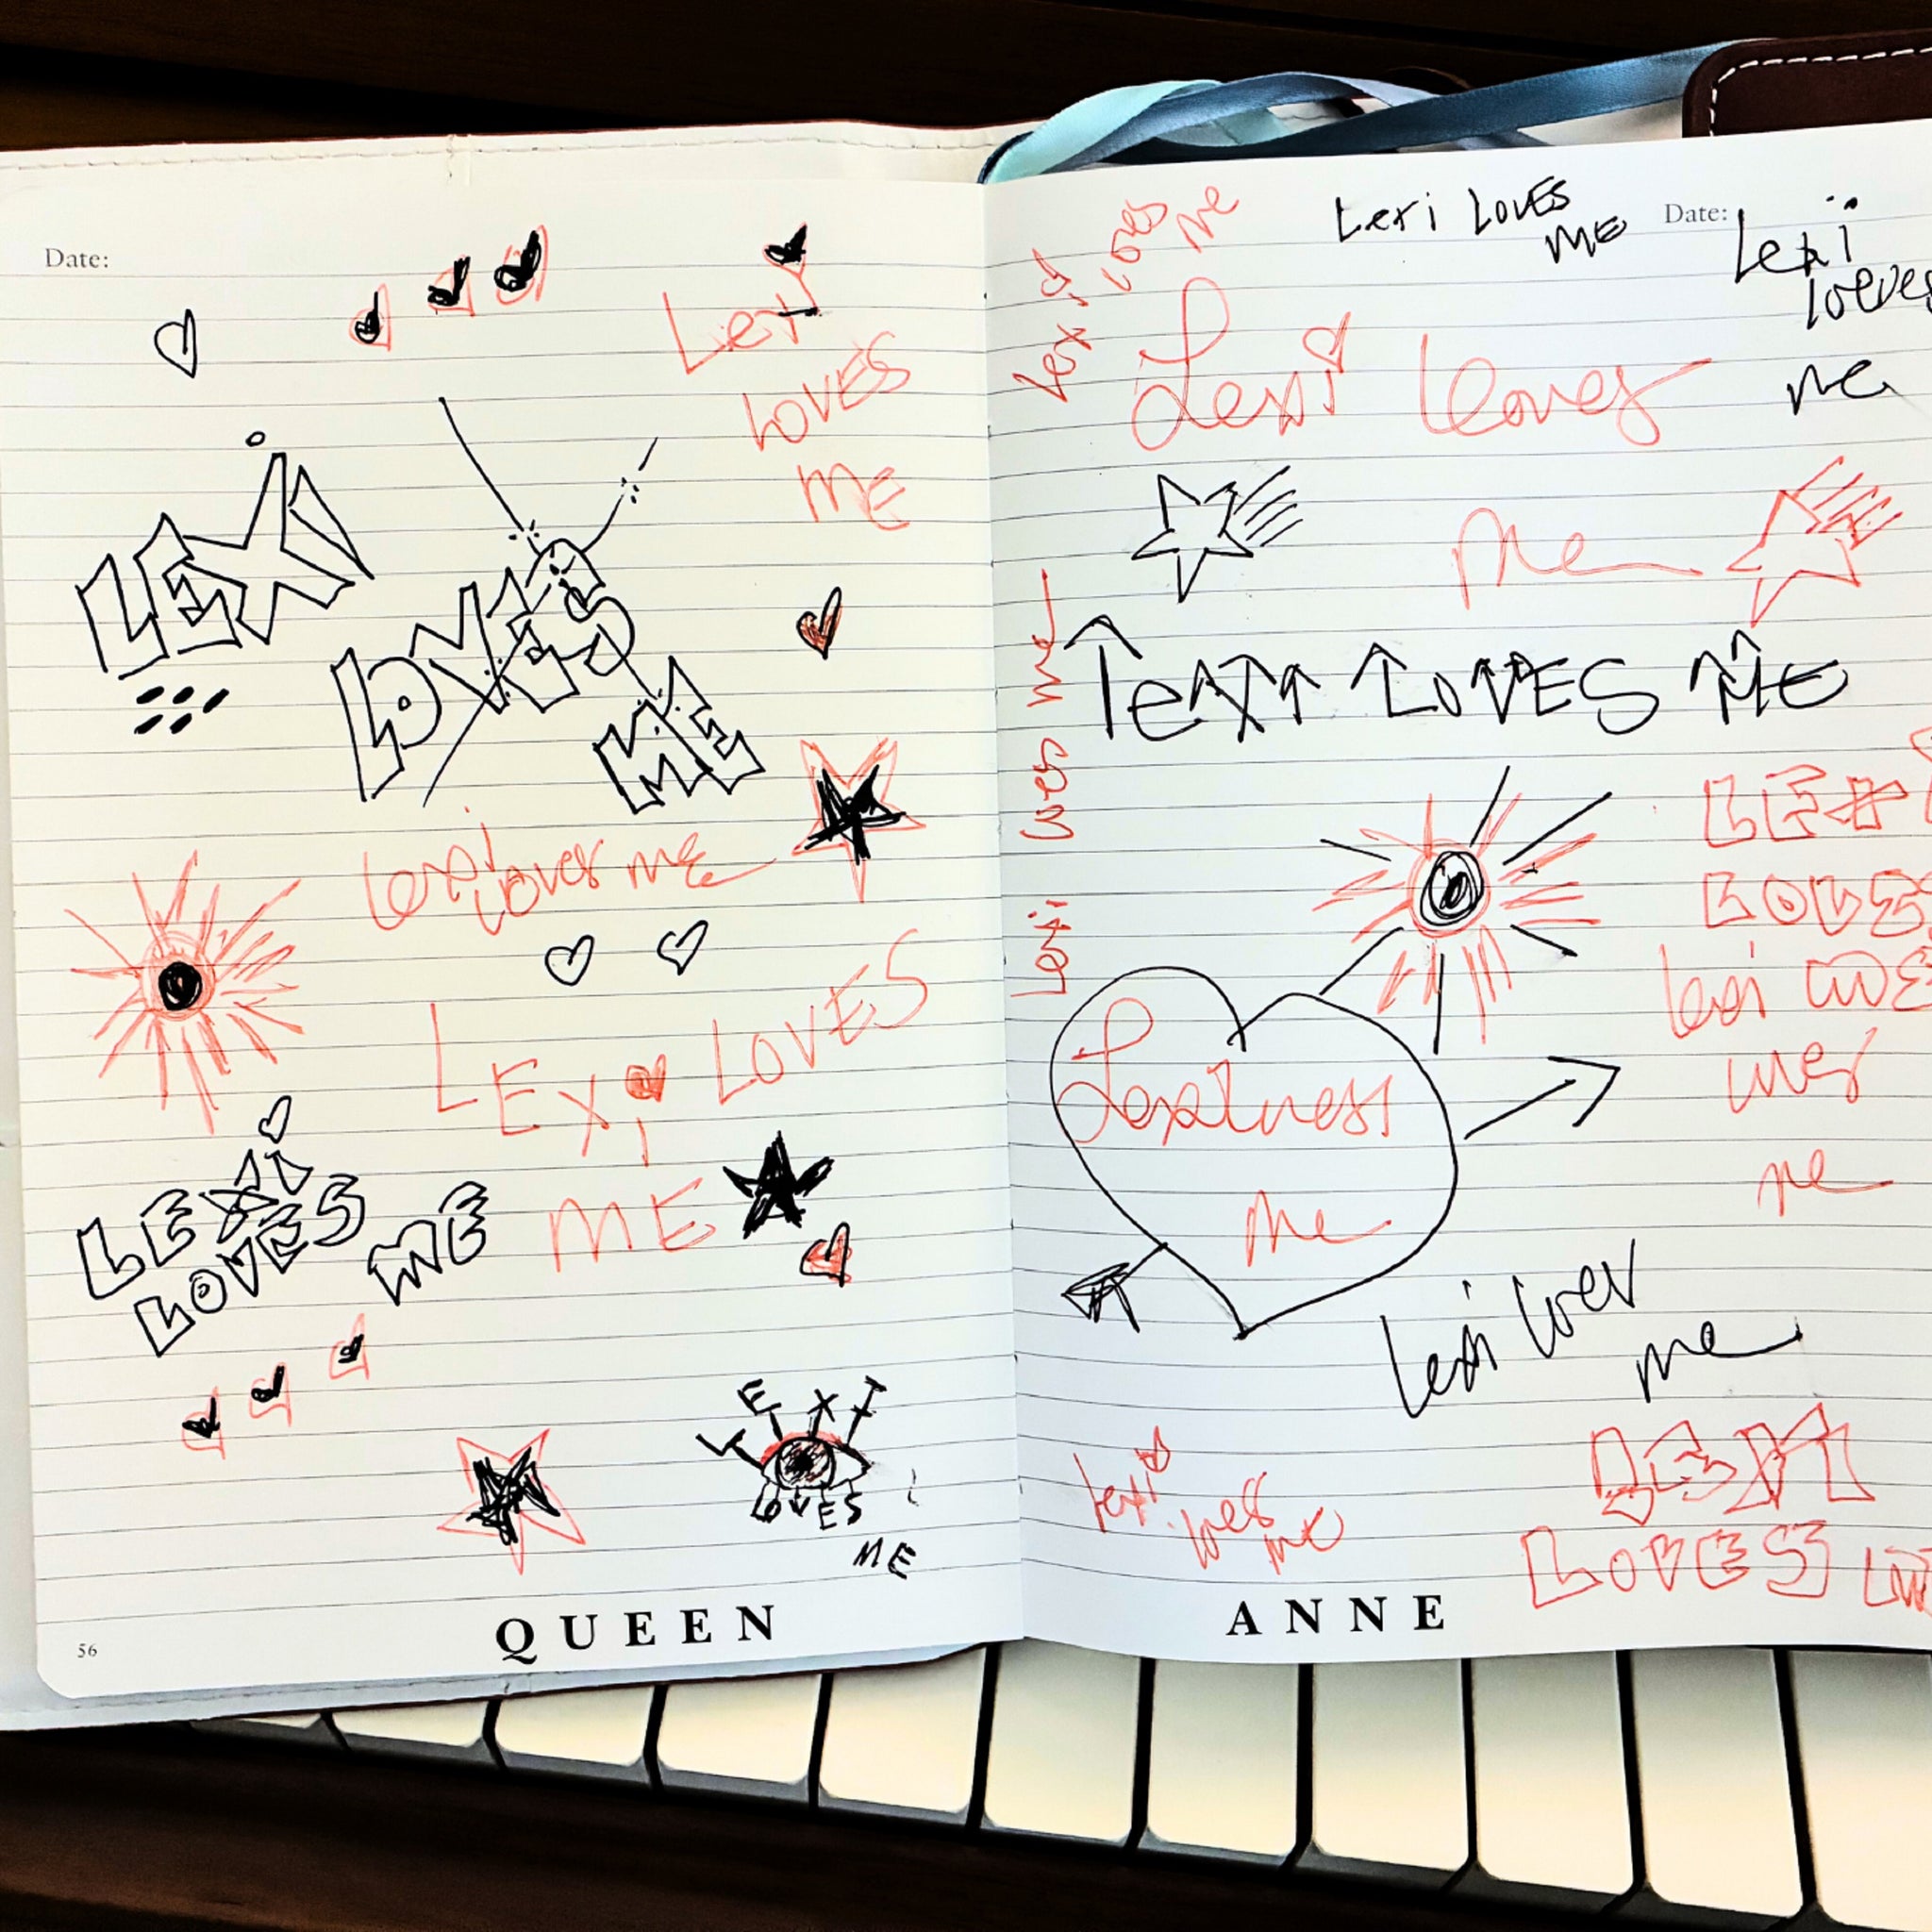 Date:
LEXI
LOVES
ME
Lexi
LOVES
ME
Lexi loves me
LEXI LOVES
ME
LEXI
LOVES ME
LEXI
LOVES
ME
56
QUEEN
Date:
Lexi loves
me
Lexi LOVES
ME
Lexi
loves
me
Lexi loves
me
Lexi loves me
LeXI LOVES ME
LEXI
LOVES
ME
Lexi
loves
me
Lexi loves
me
Lexi loves
me
Lexi
loves
me
LEXI
LOVES
ANNE